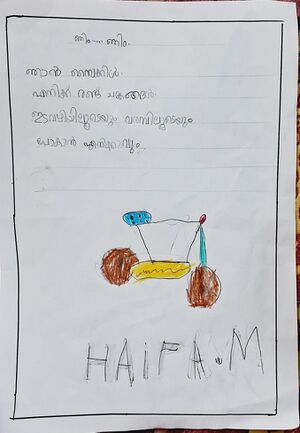 ണിം.... ണിം
ഞാൻ സൈക്കിൾ
എനിക്ക് രണ്ട് ചക്രങ്ങൾ
ഇടവഴിയിലൂടെയും വരമ്പിലൂടെയും
പോകാൻ എനിക്കാവും.
HAIFA.M